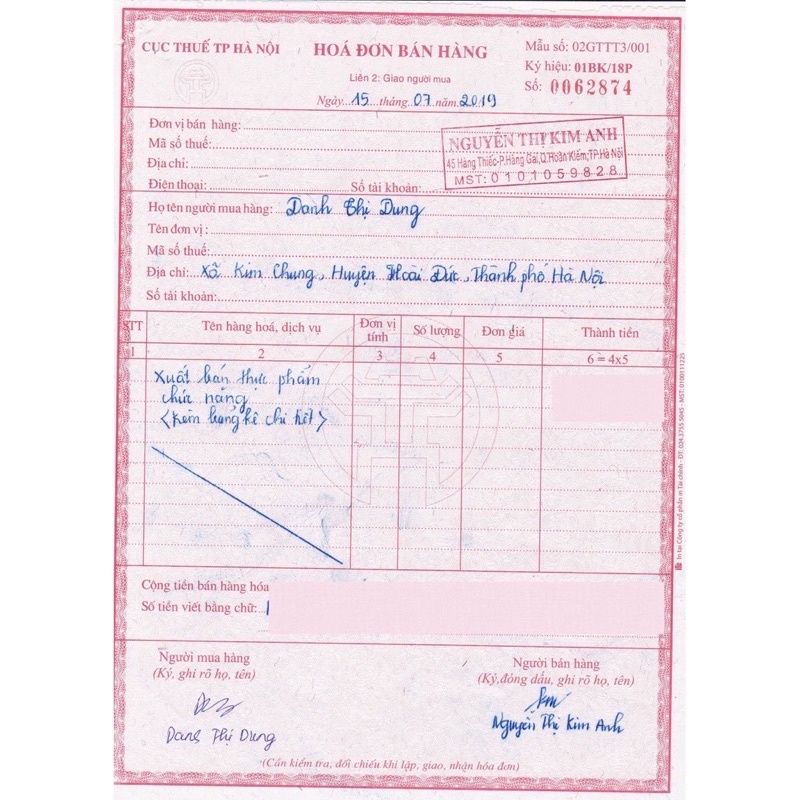 CỤC THUẾ TP HÀ NỘI
HOÁ ĐƠN BÁN HÀNG
Liên 2: Giao người mua
Ngày...15...tháng...07...năm...2019
Mẫu số: 02GTTT3/001
Ký hiệu: 01BK/18P
Số: 0062874
Đơn vị bán hàng:
Mã số thuế:
Địa chỉ:
Điện thoại: Số tài khoản:
NGUYỄN THỊ KIM ANH
45 Hàng Thiếc-P.Hàng Gai,Q.Hoàn Kiếm,TP.Hà Nội
MST: 0101059828
Họ tên người mua hàng: Danh Thị Dung
Tên đơn vị:
Mã số thuế:
Địa chỉ: Xã Kim Chung, Huyện Hoài Đức, Thành phố Hà Nội
Số tài khoản:
STT Tên hàng hoá, dịch vụ Đơn vị tính Số lượng Đơn giá Thành tiền
1 2 3 4 5 6 = 4x5
Xuất bán thực phẩm
chức năng
<Kèm bảng kê chi tiết>
Cộng tiền bán hàng hóa
Số tiền viết bằng chữ:
Người mua hàng
(Ký, ghi rõ họ, tên)
Dang Thị Dung
Người bán hàng
(Ký,đóng dấu, ghi rõ họ, tên)
Nguyễn Thị Kim Anh
(Cần kiểm tra, đối chiếu khi lập, giao, nhận hóa đơn)
In tại Công ty cổ phần in Tài chính - ĐT: 024.3755 5045 - MST: 0100111225